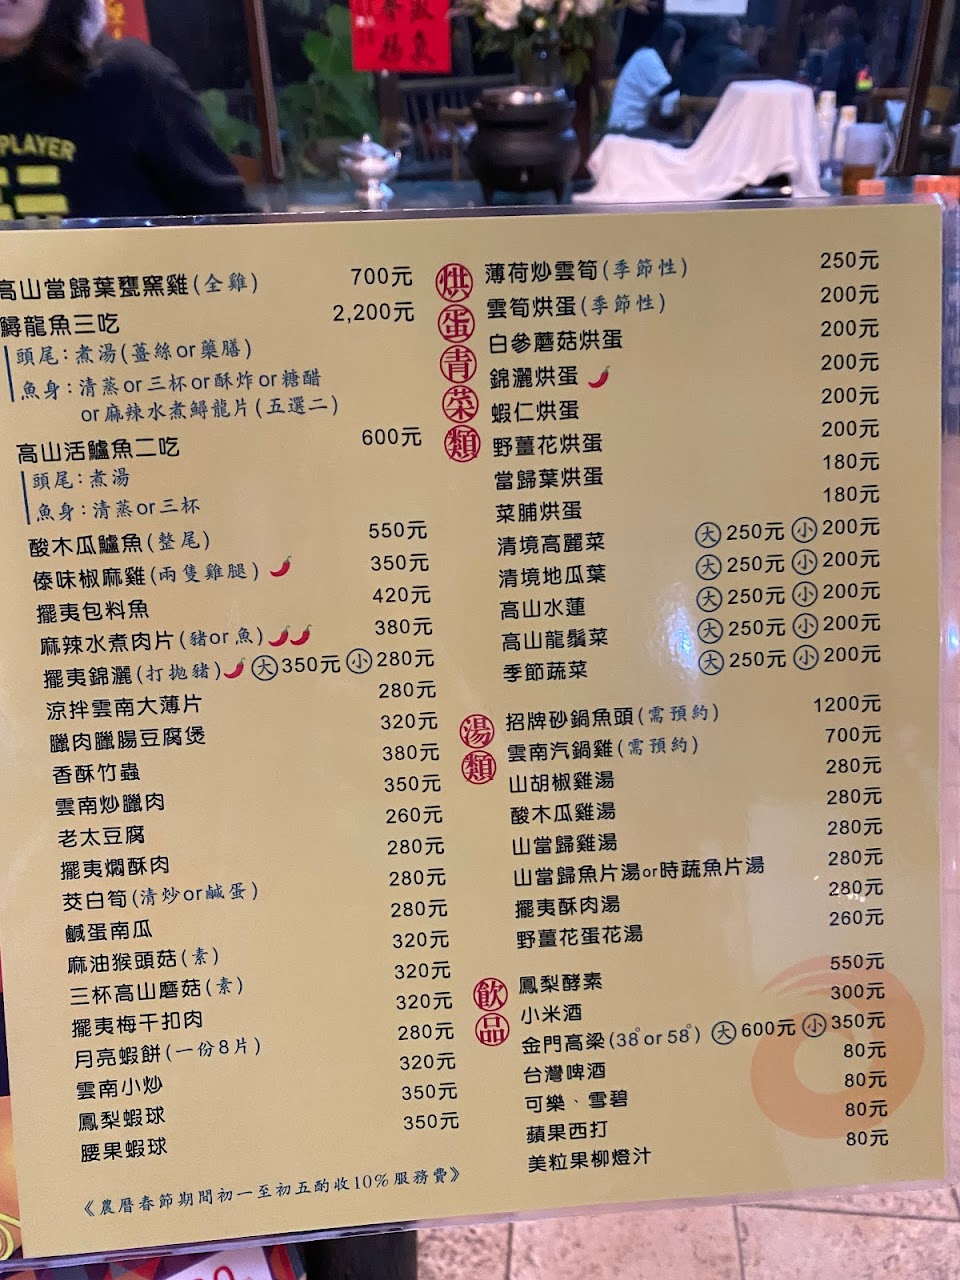 PLAYER
高山當歸葉甕窯雞(全雞) 700元
鱘龍魚三吃 2,200元
頭尾：煮湯(薑絲or藥膳)
魚身：清蒸or三杯or酥炸or糖醋
or麻辣水煮鱘龍片(五選二)
高山活鱸魚二吃 600元
頭尾：煮湯
魚身：清蒸or三杯
酸木瓜鱸魚(整尾) 550元
傣味椒麻雞(兩隻雞腿) 350元
擺夷包料魚 420元
麻辣水煮肉片(豬or魚) 380元
擺夷錦灑(打拋豬) 大350元 小280元
涼拌雲南大薄片 280元
臘肉臘腸豆腐煲 320元
香酥竹蟲 380元
雲南炒臘肉 350元
老太豆腐 260元
擺夷燜酥肉 280元
茭白筍(清炒or鹹蛋) 280元
鹹蛋南瓜 280元
麻油猴頭菇(素) 320元
三杯高山蘑菇(素) 320元
擺夷梅干扣肉 320元
月亮蝦餅(一份8片) 280元
雲南小炒 320元
鳳梨蝦球 350元
腰果蝦球 350元
《農曆春節期間初一至初五酌收10%服務費》
烘蛋青菜類
薄荷炒雲筍(季節性) 250元
雲筍烘蛋(季節性) 200元
白參蘑菇烘蛋 200元
錦灑烘蛋 200元
蝦仁烘蛋 200元
野薑花烘蛋 200元
當歸葉烘蛋 180元
菜脯烘蛋 180元
清境高麗菜 大250元 小200元
清境地瓜葉 大250元 小200元
高山水蓮 大250元 小200元
高山龍鬚菜 大250元 小200元
季節蔬菜 大250元 小200元
湯類
招牌砂鍋魚頭(需預約) 1200元
雲南汽鍋雞(需預約) 700元
山胡椒雞湯 280元
酸木瓜雞湯 280元
山當歸雞湯 280元
山當歸魚片湯or時蔬魚片湯 280元
擺夷酥肉湯 280元
野薑花蛋花湯 260元
飲品
鳳梨酵素 550元
小米酒 300元
金門高梁(38°or 58°) 大600元 小350元
台灣啤酒 80元
可樂、雪碧 80元
蘋果西打 80元
美粒果柳燈汁 80元